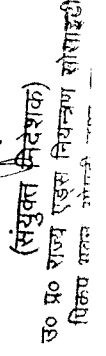 (संयुक्त निदेशक)
उ० प्र० राज्य एड्स नियन्त्रण सोसाइटी
पिकप भवन